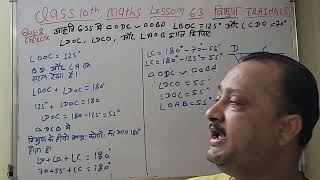 Class 10th Maths Lesson 6.3 त्रिभुज TRAINGLE
आकृति 6.35 में △ODC ~ △OBA ∠BOC = 125° और ∠CDO = 70°
∠DOC, ∠DCO, और ∠OAB ज्ञात कीजिए
∠BOC = 125°
BD और CA
सरल रेखा है।
∠DOC + ∠BOC = 180°
125° + ∠DOC = 180
∠DOC = 180 - 125 = 55°
△DCO में
त्रिभुज के तीनों
180°
होता है।
∠D + ∠O + ∠C = 180°
70 + 55 + ∠C = 180
∠C = 180° - 70 - 55
∠C = 180° - 125 = 55°
△ODC ~ △OBA
∠DCO = 55°
∠DOC = 55°
∠OAB = 55°
D